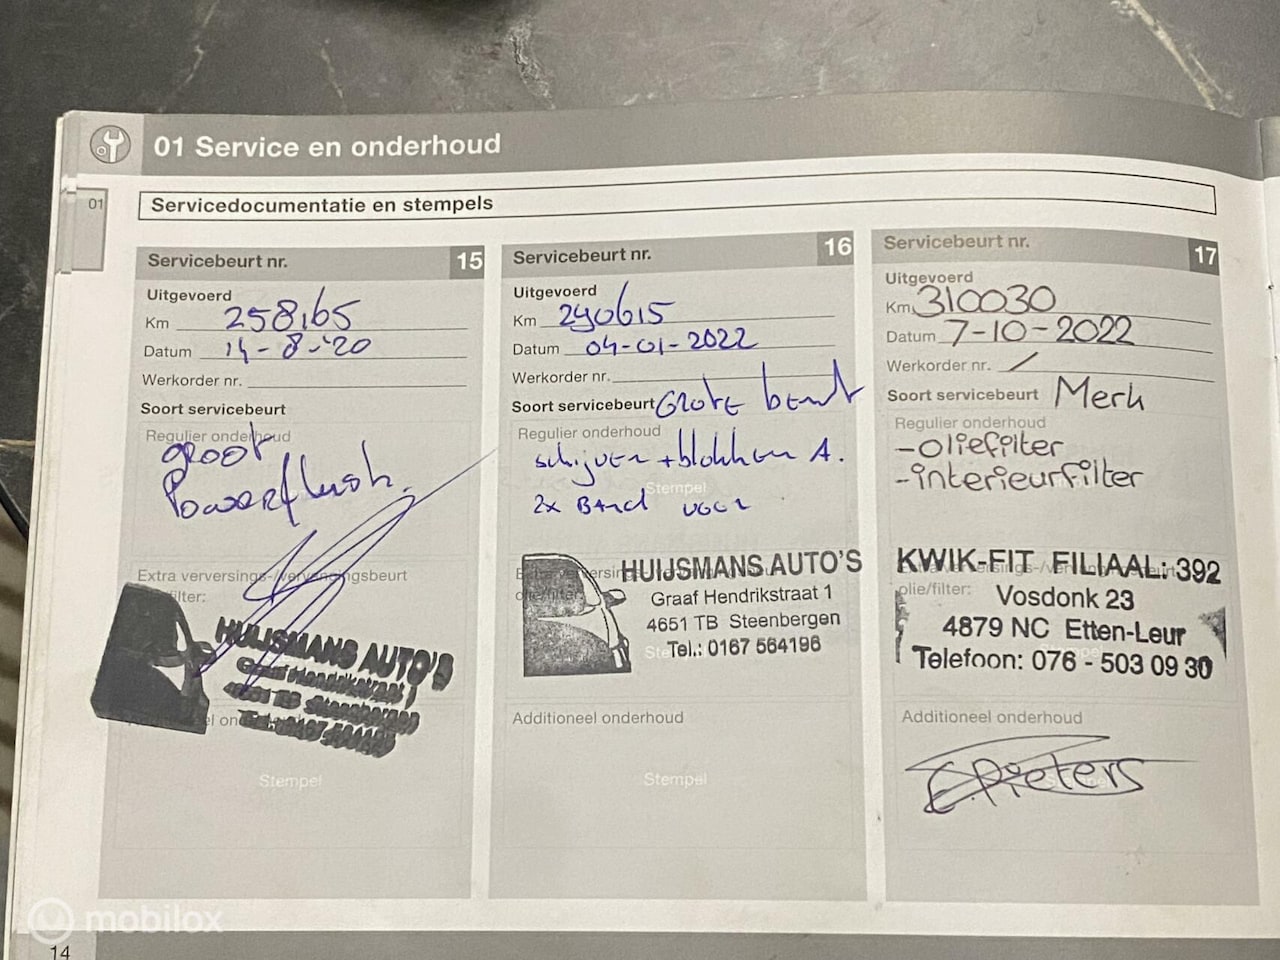 01 Service en onderhoud
01
Servicedocumentatie en stempels
Servicebeurt nr. 15
Uitgevoerd
Km 258165
Datum 14-8-'20
Werkorder nr.
Soort servicebeurt
Regulier onderhoud
groot
Powerflush.
Extra verversings-/vervangingsbeurt
HUIJSMANS AUTO'S
Graaf Hendrikstraat 1
4651 TB Steenbergen
Tel.: 0167 564196
Stempel
Servicebeurt nr. 16
Uitgevoerd
Km 290615
Datum 04-01-2022
Werkorder nr.
Soort servicebeurt Grote beurt
Regulier onderhoud
schijven + blokken A.
Stempel
2x Band voor
olie/filter:
HUIJSMANS AUTO'S
Graaf Hendrikstraat 1
4651 TB Steenbergen
Tel.: 0167 564196
Additioneel onderhoud
Stempel
Servicebeurt nr. 17
Uitgevoerd
Km 310030
Datum 7-10-2022
Werkorder nr. /
Soort servicebeurt Merk
Regulier onderhoud
-oliefilter
-interieurfilter
KWIK-FIT FILIAAL: 392
olie/filter:
Vosdonk 23
4879 NC Etten-Leur
Telefoon: 076 - 503 09 30
Additioneel onderhoud
E. Pieters
14
mobilox